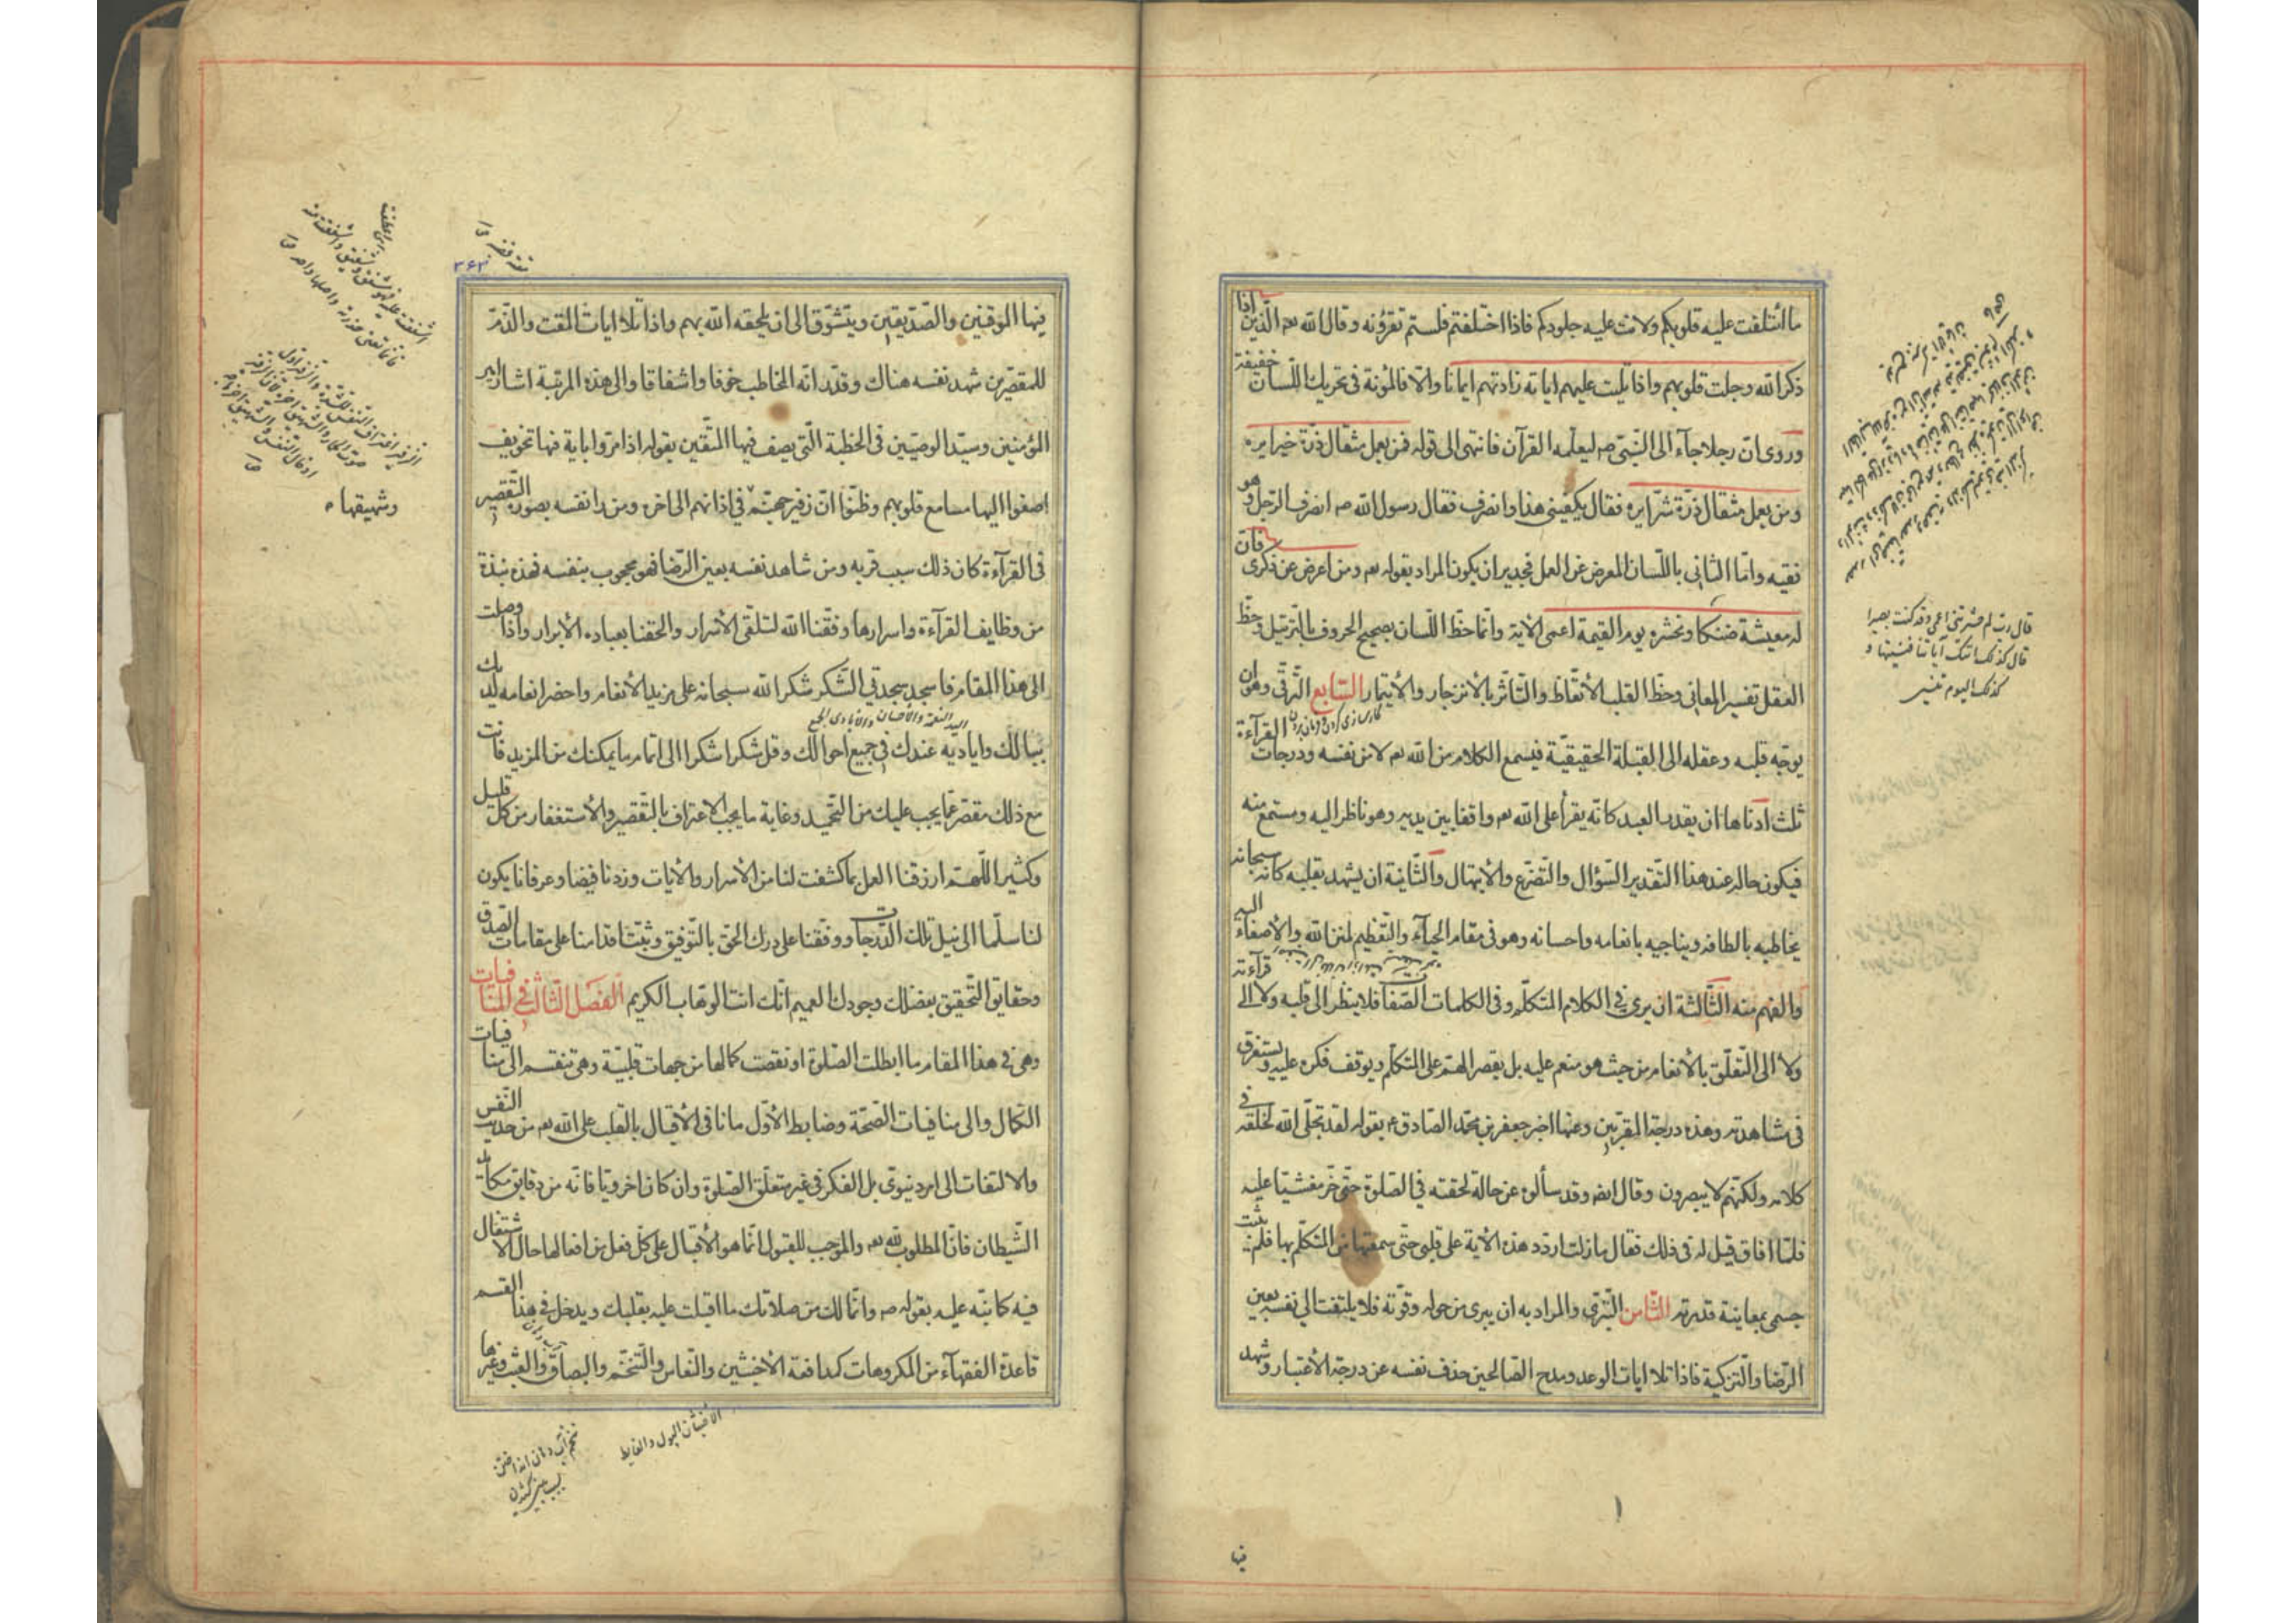 ما ائتلفت عليه قلوبكم ولانت عليه جلودكم فاذا اختلفتم فلستم تقرؤنه وقال الله تعه الّذين اذا
ذكر الله وجلت قلوبهم واذا تليت عليهم اياته زادتهم ايمانا والّا فالمؤنة فى تحريك اللّسان خفيفة
وروى انّ رجلا جآء الى النّبىّ صه ليعلّمه القرآن فانتهى الى قوله فمن يعمل مثقال ذرّة خيرا يره
ومن يعمل مثقال ذرّة شرّا يره فقال يكفينى هذا وانصرف فقال رسول الله صه انصرف الرّجل وهو
فقيه وامّا التّالى باللّسان المعرض عن العمل فجدير ان يكون المراد بقوله تعه ومن اعرض عن ذكرى فانّ
له معيشة ضنكا ونحشره يوم القيمة اعمى الآية وانّما حظّ اللّسان تصحيح الحروف بالتّرتيل وحظّ
العقل تفسير المعانى وحظّ القلب الأتّعاظ والتّأثّر بالأنزجار والأيتمار السّابع التّرقّى وهو ان
يوجّه قلبه وعقله الى القبلة الحقيقيّة فيسمع الكلام من الله تعه لا من نفسه ودرجات القرآءة
ثلث ادناها ان يقدر العبد كانّه يقرأ على الله تعه واقفا بين يديه وهو ناظر اليه ومستمع منه
فيكون حاله عند هذا التّقدير السّؤال والتّضرّع والأبتهال والثّانية ان يشهد بقلبه كانّه سبحانه
يخاطبه بالطافه ويناجيه بانعامه واحسانه وهو فى مقام الحيآء والتّعظيم لمنن الله والأصغآء اليه
والفهم منه الثّالثة ان يرى فى الكلام المتكلّم وفى الكلمات الصّفات فلا ينظر الى قلبه ولا الى قرآءته
ولا الى التّعلّق بالأنعام من حيث هو منعم عليه بل يقصر الهمّ على المتكلّم ويوقف فكره عليه ويستغرق
فى مشاهدته وهذه درجة المقرّبين وعنها اخبر جعفر بن محمّد الصّادق عه بقوله لقد تجلّى الله لخلقه فى
كلامه ولكنّهم لا يبصرون وقال ايضا وقد سألوه عن حالة لحقته فى الصّلوة حتّى خرّ مغشيّا عليه
فلمّا افاق قيل له فى ذلك فقال ما زلت اردّد هذه الأية على قلبى حتّى سمعتها من المتكلّم بها فلم يثبت
جسمى بمعاينة قدرته الثّامن التّبرّى والمراد به ان يبرى من حوله وقوّته فلا يلتفت الى نفسه بعين
الرّضا والتّزكية فاذا تلا ايات الوعد ومدح الصّالحين حذف نفسه عن درجة الأعتبار وشهد
قال رب لم حشرتنى اعمى وقد كنت بصيرا
قال كذلك اتتك آياتنا فنسيتها و
كذلك اليوم تنسى
فيها
فيها الموقنين والصّدّيقين ويتشوّق الى ان يلحقه الله بهم واذا تلا ايات المقت والذّمّ
للمقصّرين شهد نفسه هناك وقدّر انّه المخاطب خوفا واشفاقا والى هذه المرتبة اشار امير
المؤمنين وسيّد الوصيّين فى الخطبة الّتى يصف فيها المتّقين بقوله اذا مرّوا باية فيها تخويف
اصغوا اليها مسامع قلوبهم وظنّوا انّ زفير جهنّم فى اذانهم الى اخره ومن رأى نفسه بصورة التّقصير
فى القرآءة كان ذلك سبب قربه ومن شاهد نفسه بعين الرّضا فهو محجوب بنفسه فهذه نبذة
من وظايف القرآءة واسرارها وفّقنا الله لتلقّى الأسرار والحقنا بعباده الأبرار واذا وصلت
الى هذا المقام فاسجد سجدتى الشّكر شكرا لله سبحانه على مزيد الأنعام واحضر انعامه لديك
ببالك واياديه عندك فى جميع احوالك وقل شكرا شكرا الى اتمام ما يمكنك من المزيد فانت
مع ذلك مقصّر عمّا يجب عليك من التّحميد وغاية ما يجب الاعتراف بالتّقصير والأستغفار من كلّ قليل
وكثير اللّهمّ ارزقنا العمل بما كشفت لنا من الأسرار والأيات وزدنا فيضا وعرفانا يكون
لنا سلّما الى نيل تلك الدّرجات ووفّقنا على درك الحقّ بالتّوفيق وثبّت اقدامنا على مقامات الصّدق
وحقايق التّحقيق بفضلك وجودك العميم انّك انت الوهّاب الكريم الفصل الثّالث فى المنافيات
وهى فى هذا المقام ما ابطلت الصّلوة او نقصت كمالها من جهات قلبيّة وهى تنقسم الى منافيات
الكمال والى منافيات الصّحّة وضابط الأوّل ما نافى الأقبال بالقلب على الله تعه من حديث النّفس
والالتفات الى امر دنيوىّ بل الفكر فى غير متعلّق الصّلوة وان كان اخرويّا فانّه من دقايق مكائد
الشّيطان فانّ المطلوب لله تعه والموجب للقبول انّما هو الأقبال على كلّ فعل من افعالها حال الاشتغال
فيه كما نبّه عليه بقوله صه وانّما لك من صلاتك ما اقبلت عليه بقلبك ويدخل فى هذا القسم
قاعدة الفقهآء من المكروهات كمدافعة الأخبثين والنّعاس والتّنخّم والبصاق والعبث وغيرها
وشهيقها
اليد النعمة والأحسان والأيادى الجمع
الأخبثان البول والغايط